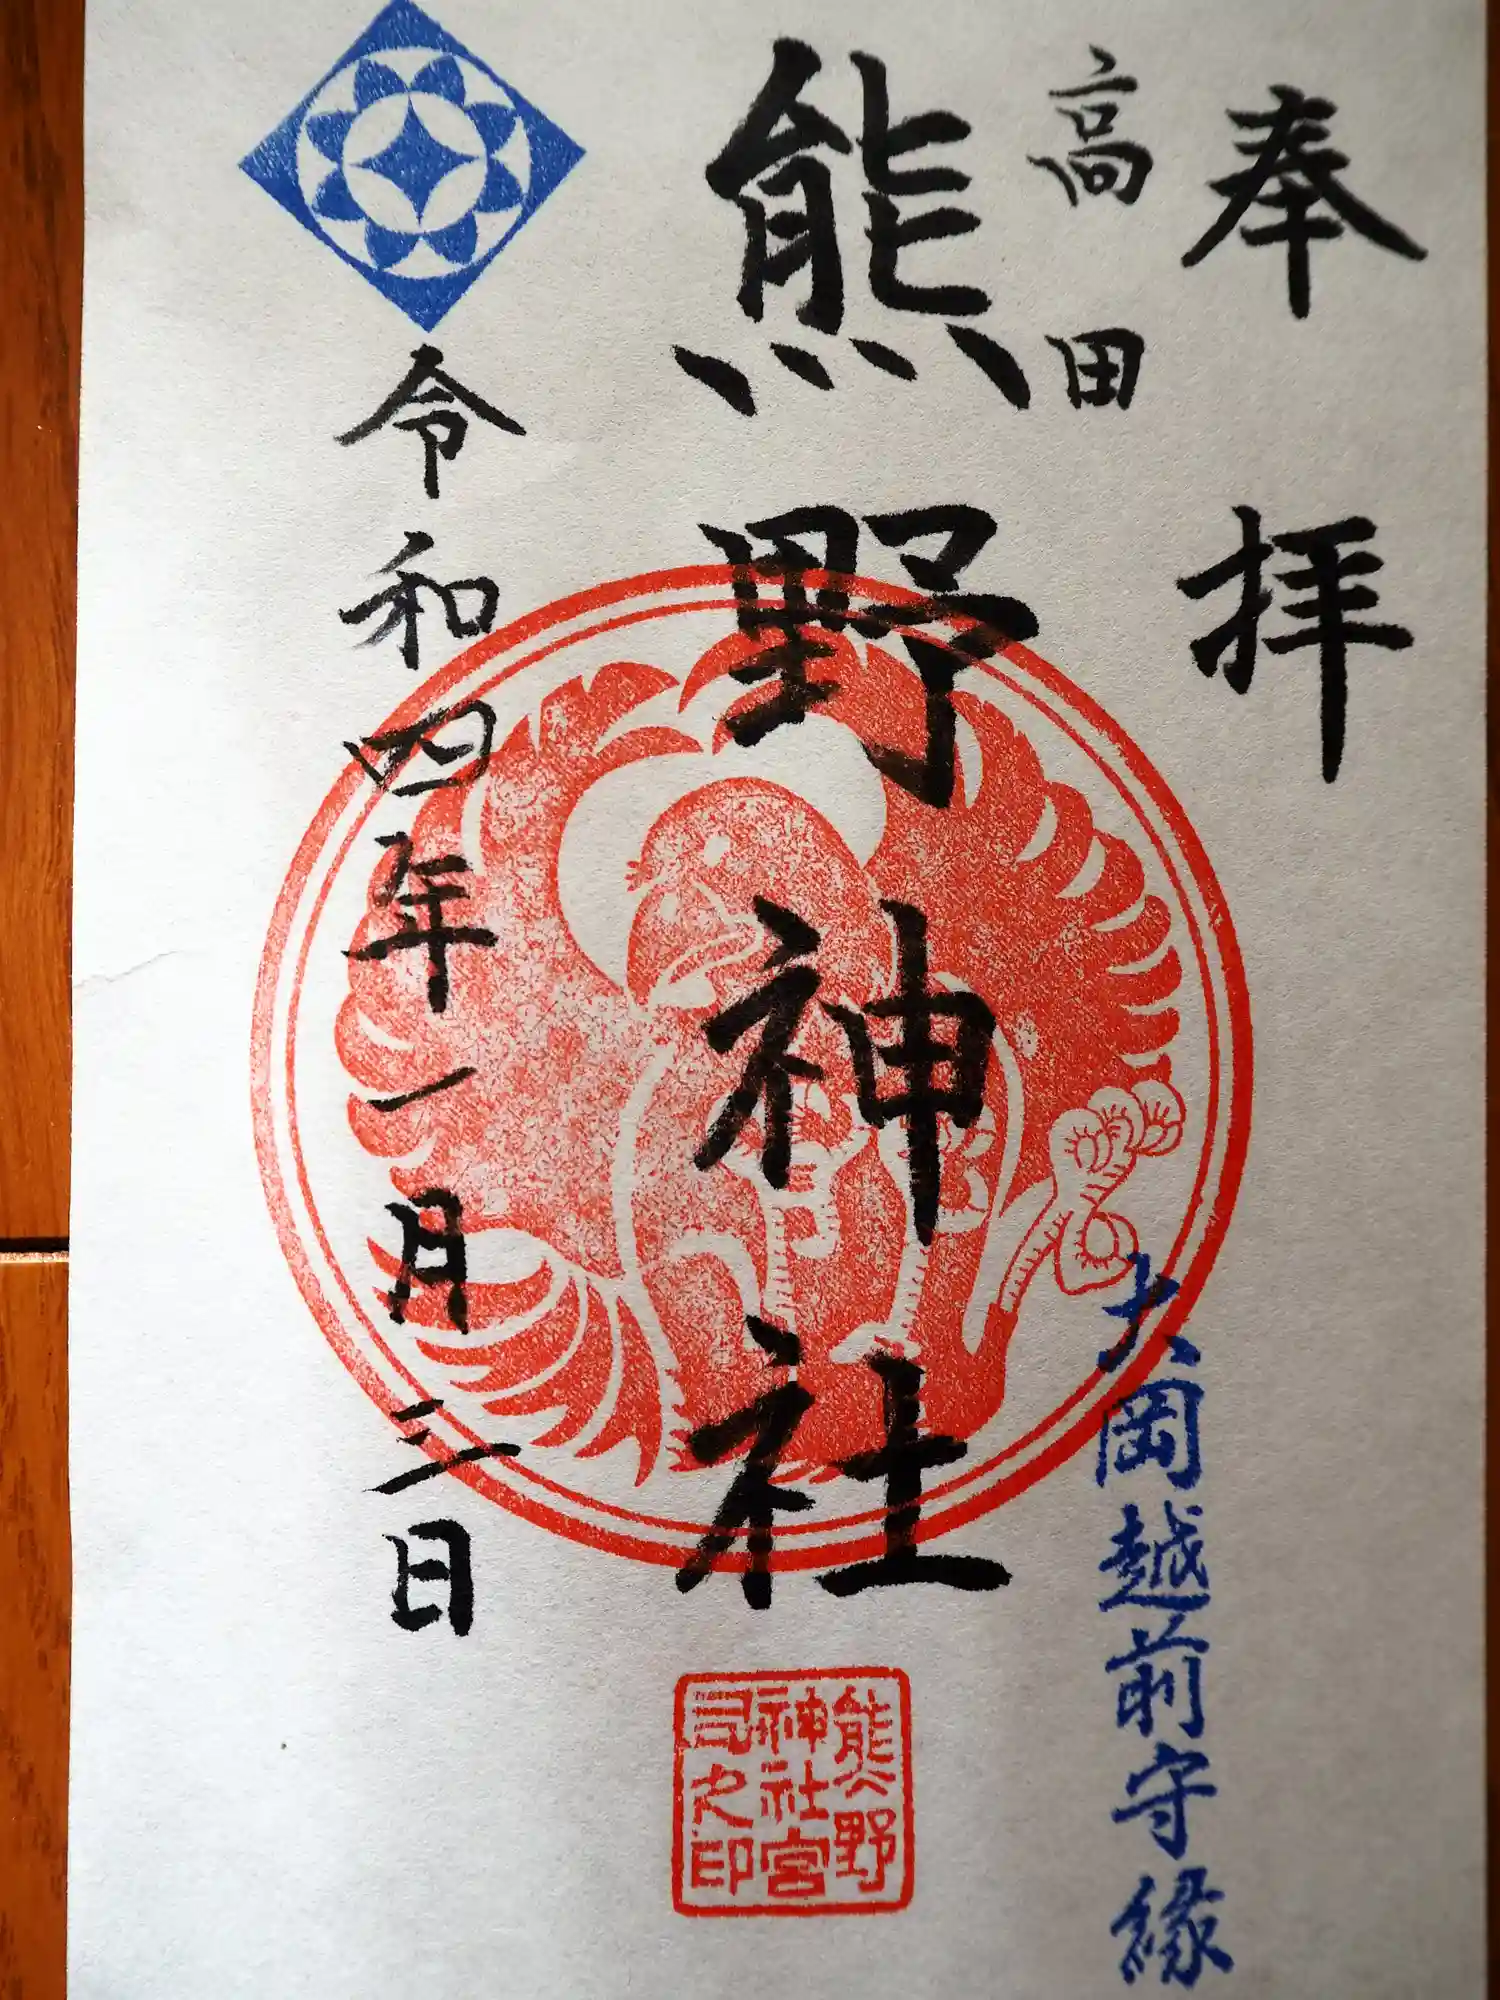 奉拝
高田
熊野神社
大岡越前守縁
令和四年一月三日
熊野
神社宮
司之印